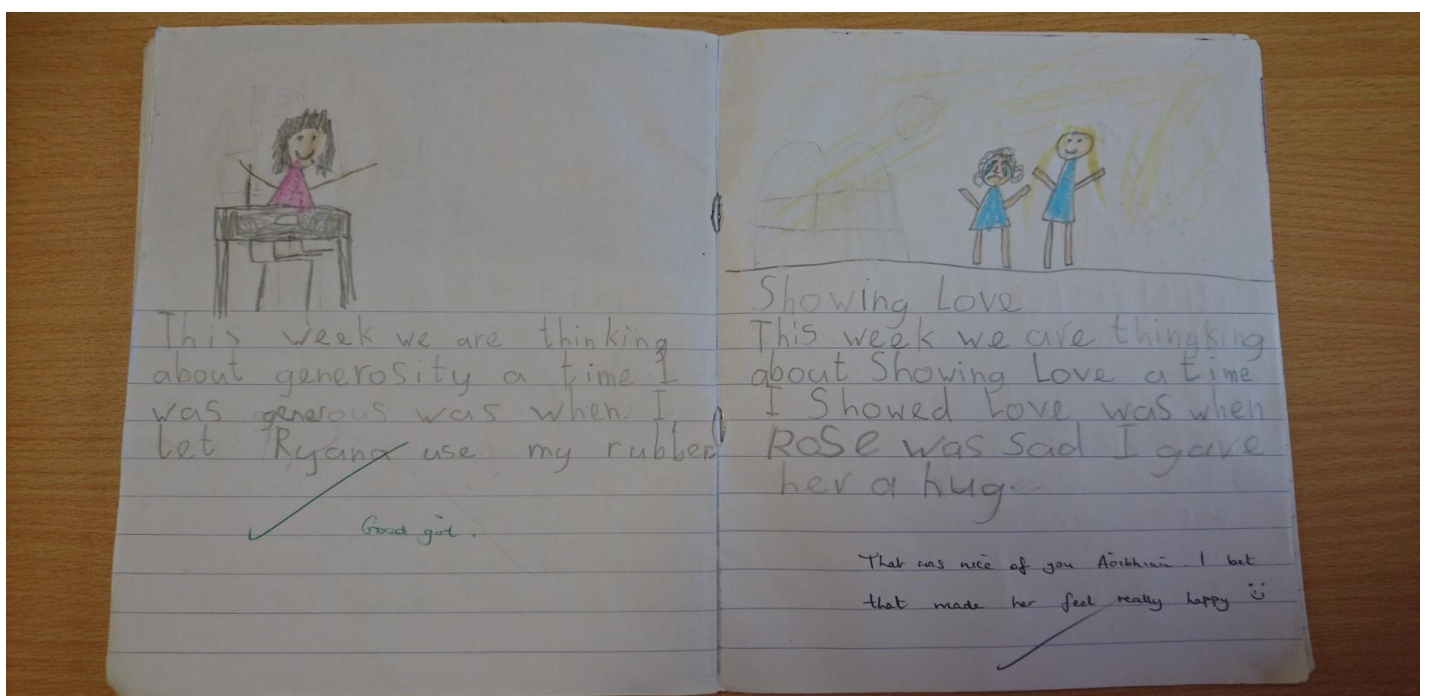 This week we are thinking
about generosity a time I
was generous was when I
let Ryana use my rubber
Good girl.
Showing Love
This week we are thingking
about Showing Love a time
I Showed Love was when
Rose was sad I gave
her a hug.
That was nice of you Aoibhinn I bet
that made her feel really happy